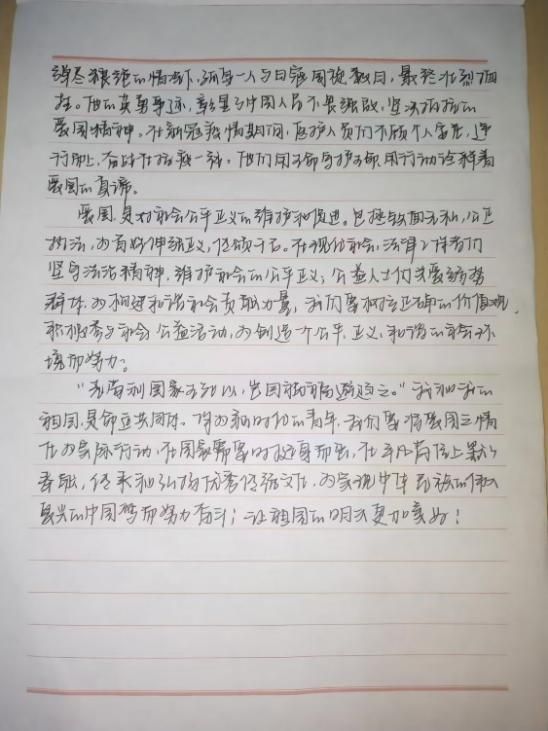 弹尽粮绝的情况下,孤身一人与日寇周旋数日,最终壮烈牺
牲。他的英勇事迹,彰显了中国人民不畏强敌,坚决捍卫的
爱国精神。在新冠疫情期间,医护人员们不顾个人安危,逆
行而上,奋战在抗疫一线,他们用生命守护生命,用行动诠释着
爱国的真谛。
爱国,是对社会公平正义的维护和促进。包拯铁面无私,公正
执法,为百姓伸张正义,传颂千古。在现代社会,法律工作者们
坚守法治精神,维护社会的公平正义;公益人士们关爱弱势
群体,为构建和谐社会贡献力量,我们要树立正确的价值观,
积极参与社会公益活动,为创造一个公平、正义、和谐的社会环
境而努力。
“苟有利国家生死以,岂因祸福避趋之。”我和我的
祖国,是命立共同体。作为新时代的青年,我们要将爱国之情
化为实际行动,在国家需要时挺身而出,在平凡岗位上默默
奉献,传承和弘扬优秀传统文化,为实现中华民族的伟大
复兴的中国梦而努力奋斗;让祖国的明天更加美好!